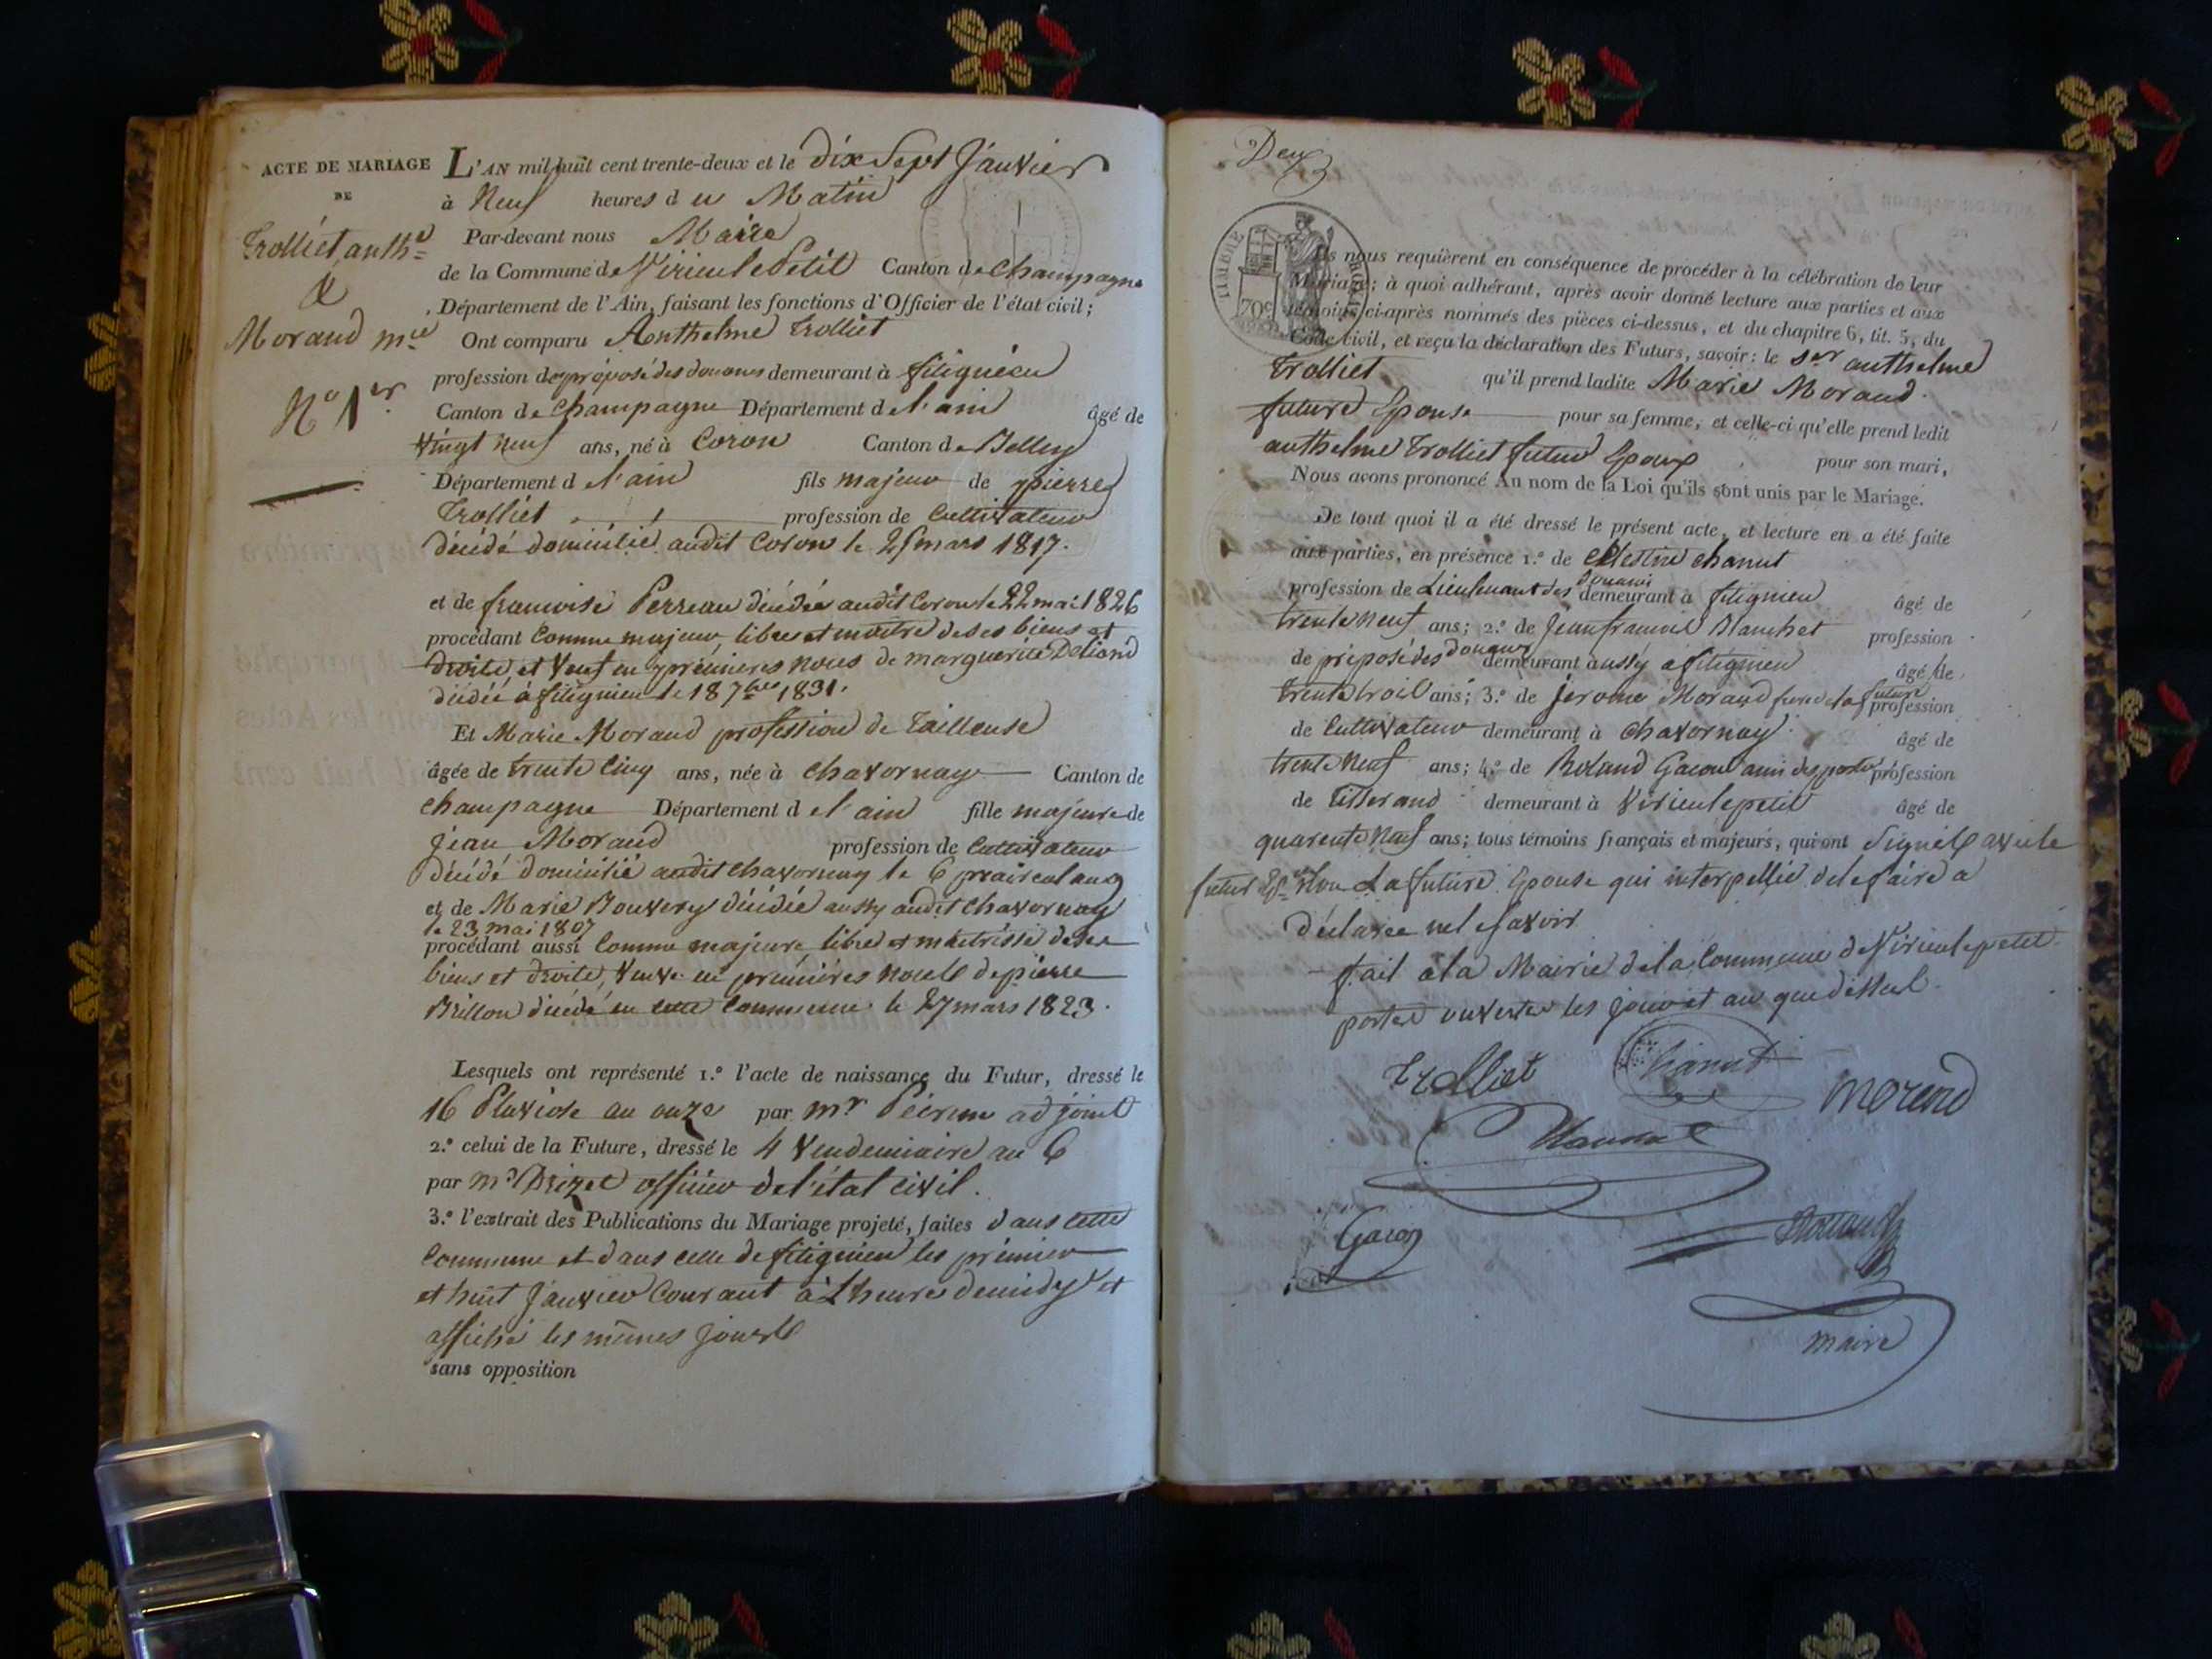 ACTE DE MARIAGE
DE
Trolliet anth.e
&
Morand m.ie
N.o 1er
L'AN mil huit cent trente-deux et le dix Sept Janvier
à Neuf heures du Matin
Par-devant nous Maire
de la Commune de Virieulepetit Canton de Champagne
Département de l'Ain, faisant les fonctions d'Officier de l'état civil;
Ont comparu Anthelme Trolliet
profession de préposé des douanes demeurant à fitignieu
Canton de Champagne Département de l'ain âgé de
vingt neuf ans, né à Coron Canton de Belley
Département de l'ain fils majeur de pierre
Trolliet profession de Cultivateur
décédé domicilié audit Coron le 25 mars 1817.
et de francoise Perreau décédée audit Coron le 22 mai 1826
procédant Comme majeur, libre et maitre de ses biens et
droits, et Veuf en premieres noces de marguerite
décédée à fitignieu le 18 7bre 1831.
Et Marie Morand profession de Tailleuse
âgée de trente Cinq ans, née à Chavornay Canton de
Champagne Département de l'ain fille majeure de
Jean Morand profession de Cultivateur
décédé domicilié audit Chavornay le 6 prairéal an 9
et de Marie Bouvery décédée aussy audit Chavornay
le 23 mai 1807
procédant aussi Comme majeure libre et maitrisse de ses
biens et droits, Veuve en premières noces de pierre
Brillon décédé en cette Commune le 27 mars 1823.
Lesquels ont représenté 1.º l'acte de naissance du Futur, dressé le
16 Pluviose an onze par mr adjoint
2.º celui de la Future, dressé le 4 Vendemiaire an 6
par mr officier de l'état civil.
3.º l'extrait des Publications du Mariage projeté, faites dans cette
Commune et dans celle de fitignieu les premier
et huit Janvier Courant à L'heure de midy et
affiché les mêmes jours
sans opposition
Deux
TIMBRE ROYAL
70c
Ils nous requièrent en conséquence de procéder à la célébration de leur
Mariage; à quoi adhérant, après avoir donné lecture aux parties et aux
témoins ci-après nommés des pièces ci-dessus, et du chapitre 6, tit. 5, du
Code civil, et reçu la déclaration des Futurs, savoir: le Sr anthelme
Trolliet qu'il prend ladite Marie Morand
future Epouse pour sa femme, et celle-ci qu'elle prend ledit
anthelme Trolliet futur Epoux pour son mari,
Nous avons prononcé Au nom de la Loi qu'ils sont unis par le Mariage.
De tout quoi il a été dressé le présent acte, et lecture en a été faite
aux parties, en présence 1.º de Célestin Chanut
profession de Lieutenant des douanes demeurant à fitignieu âgé de
trente neuf ans; 2.º de Jean francois Blanchet profession
de préposé des douanes demeurant aussy à fitignieu âgé de
trente trois ans; 3.º de jerome Morand frere de la future profession
de Cultivateur demeurant à Chavornay âgé de
trente neuf ans; 4.º de Roland Gacon ami des parties profession
de Tisserand demeurant à Virieulepetit âgé de
quarente neuf ans; tous témoins français et majeurs, qui ont Signés avec le
futur non La future Epouse qui interpellée de le faire a
déclarée nel e savoir
fait à la Mairie de la Commune de Virieulepetit
portes ouvertes les jour et an que dessus.
Trolliet Chanut Morend
Gacon
maire